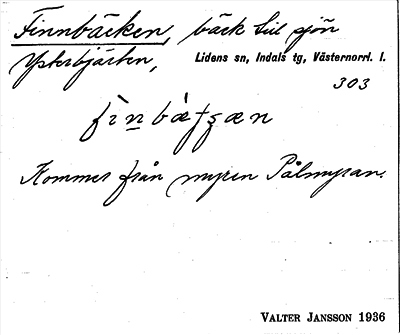 Finnbäcken, bäck till sjön
Ysterbjärten, Lidens sn, Indals tg, Västernorrl. l.
303
Kommer från myren Pålmyran.
VALTER JANSSON 1936